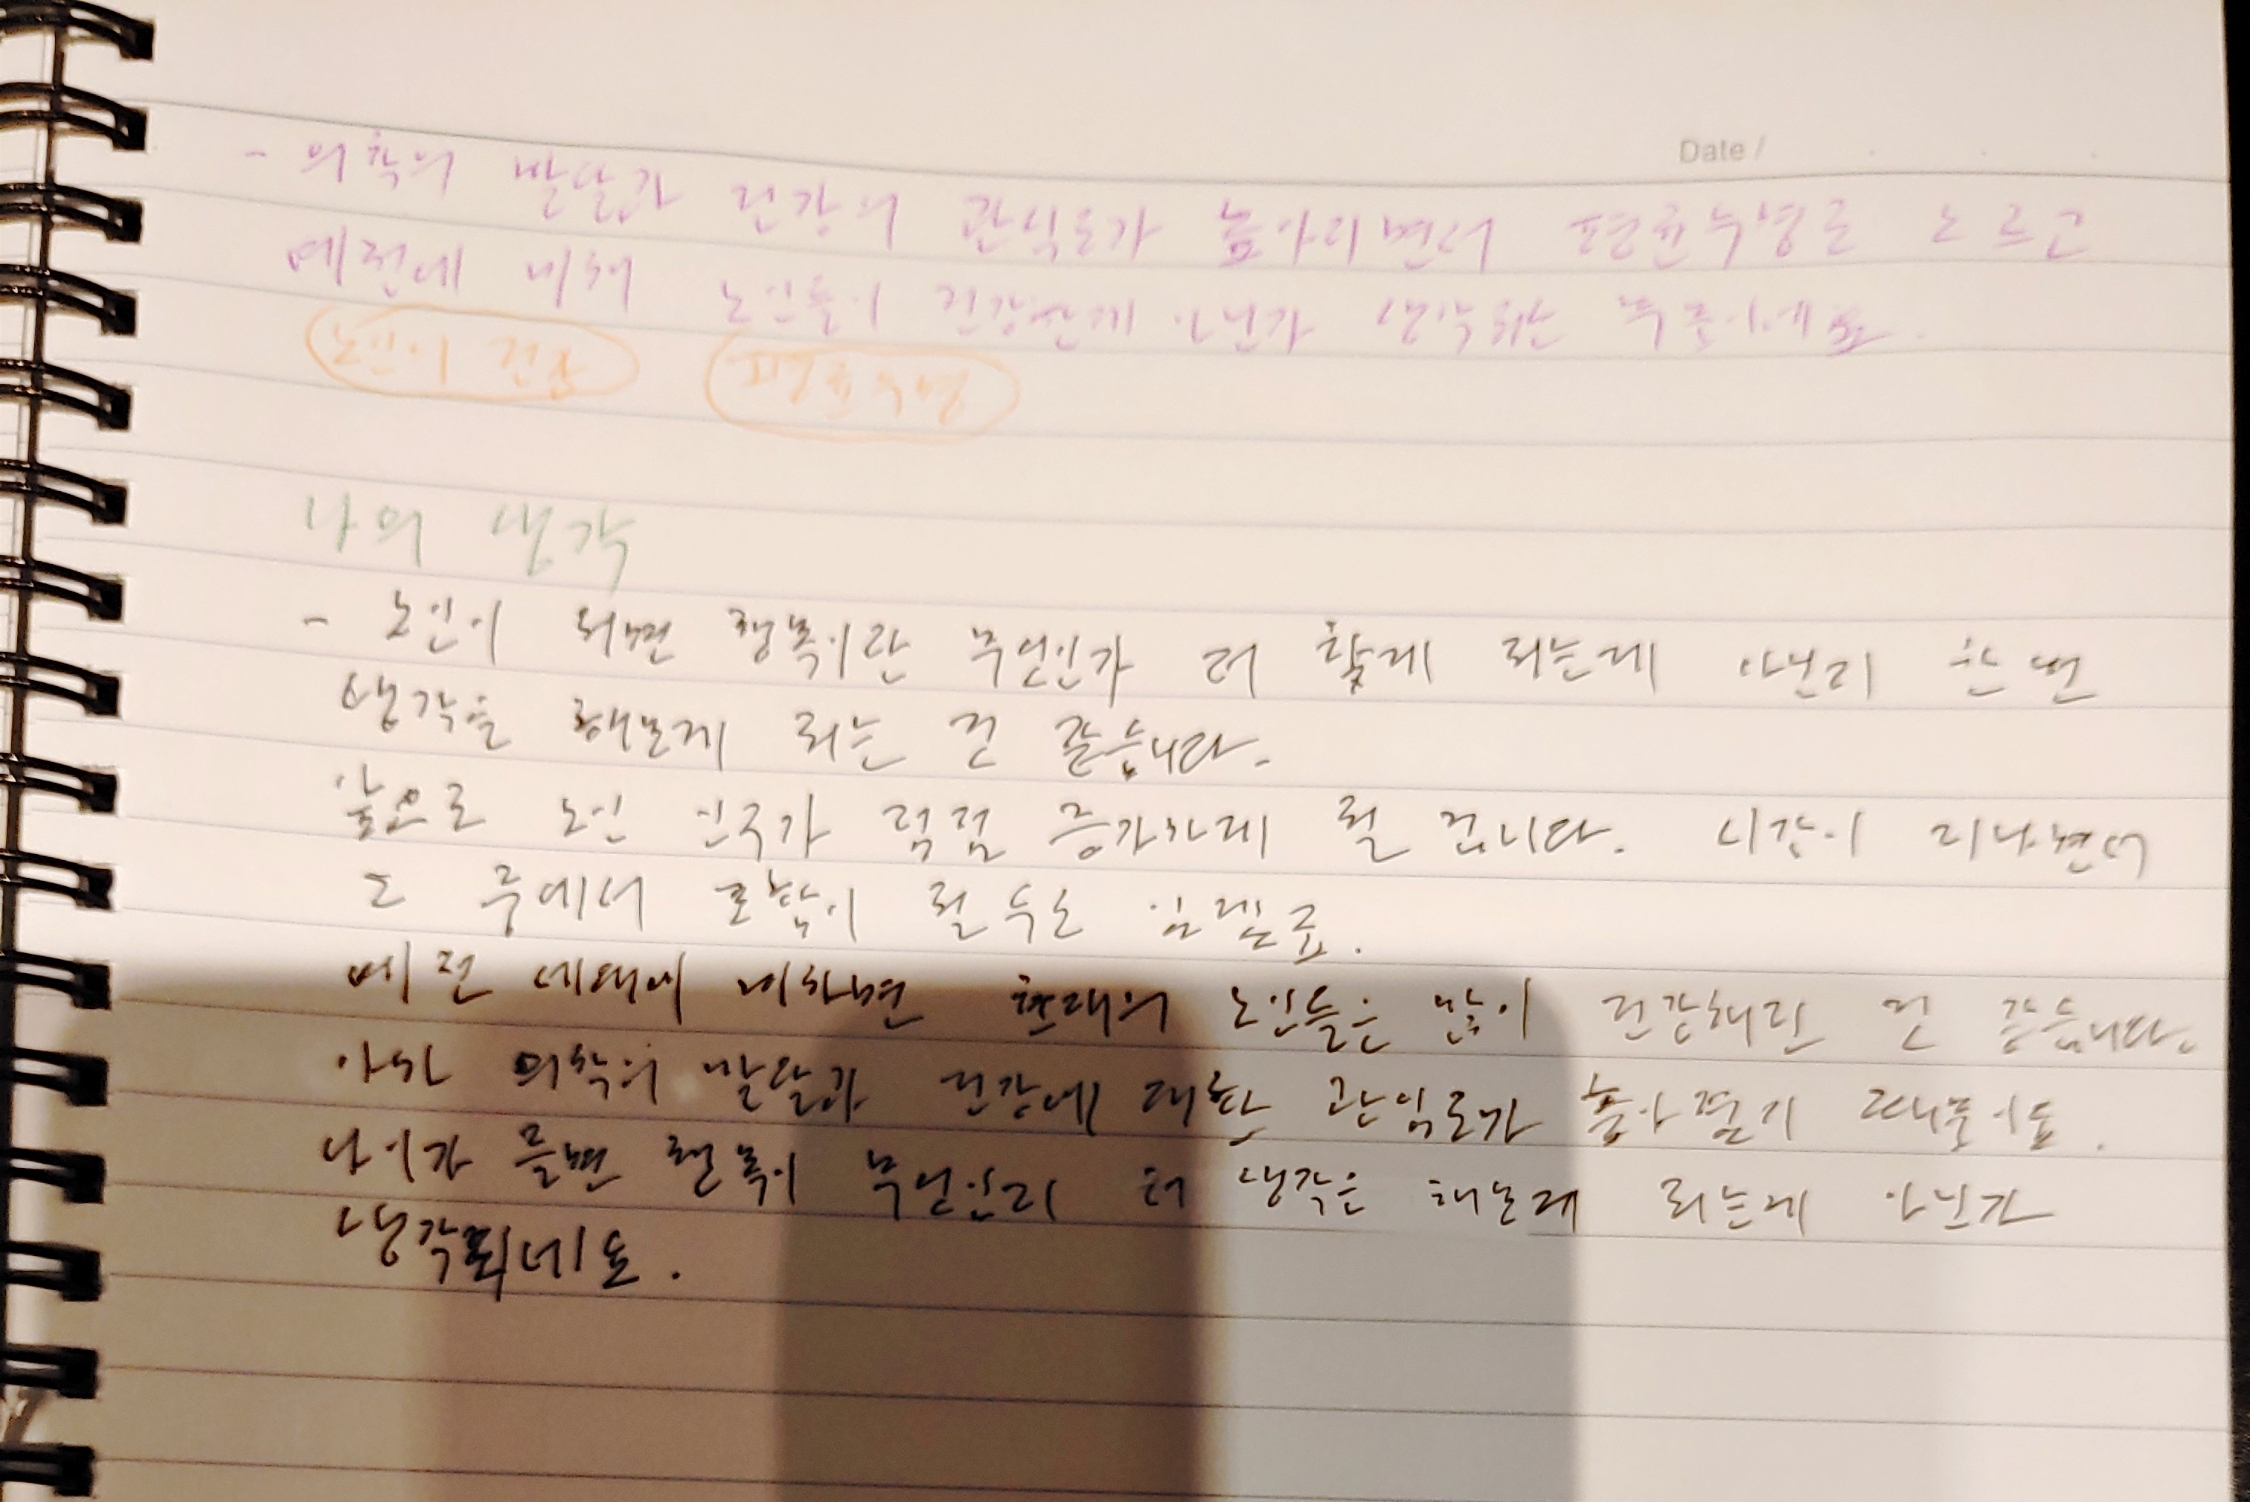 Date /
- 의학의 발달과 건강의 관심도가 높아지면서 평균수명도 오르고
예전에 비해 노인들이 건강한게 아닌가 생각하는 부분이네요.
노인이 건강 평균수명
나의 생각
- 노인이 되면 행복이란 무엇인가 더 찾게 되는게 아닌지 한 번
생각을 해보게 되는 것 같습니다.
앞으로 노인 인구가 점점 증가하게 될 겁니다. 시간이 지나면서
그 중에서 포함이 될 수도 있겠죠.
예전 세대에 비하면 현대의 노인들은 많이 건강해진 것 같습니다.
아마 의학의 발달과 건강에 대한 관심도가 높아졌기 때문이죠.
나이가 들면 행복이 무엇인지 더 생각을 해보게 되는게 아닌가
생각되네요.